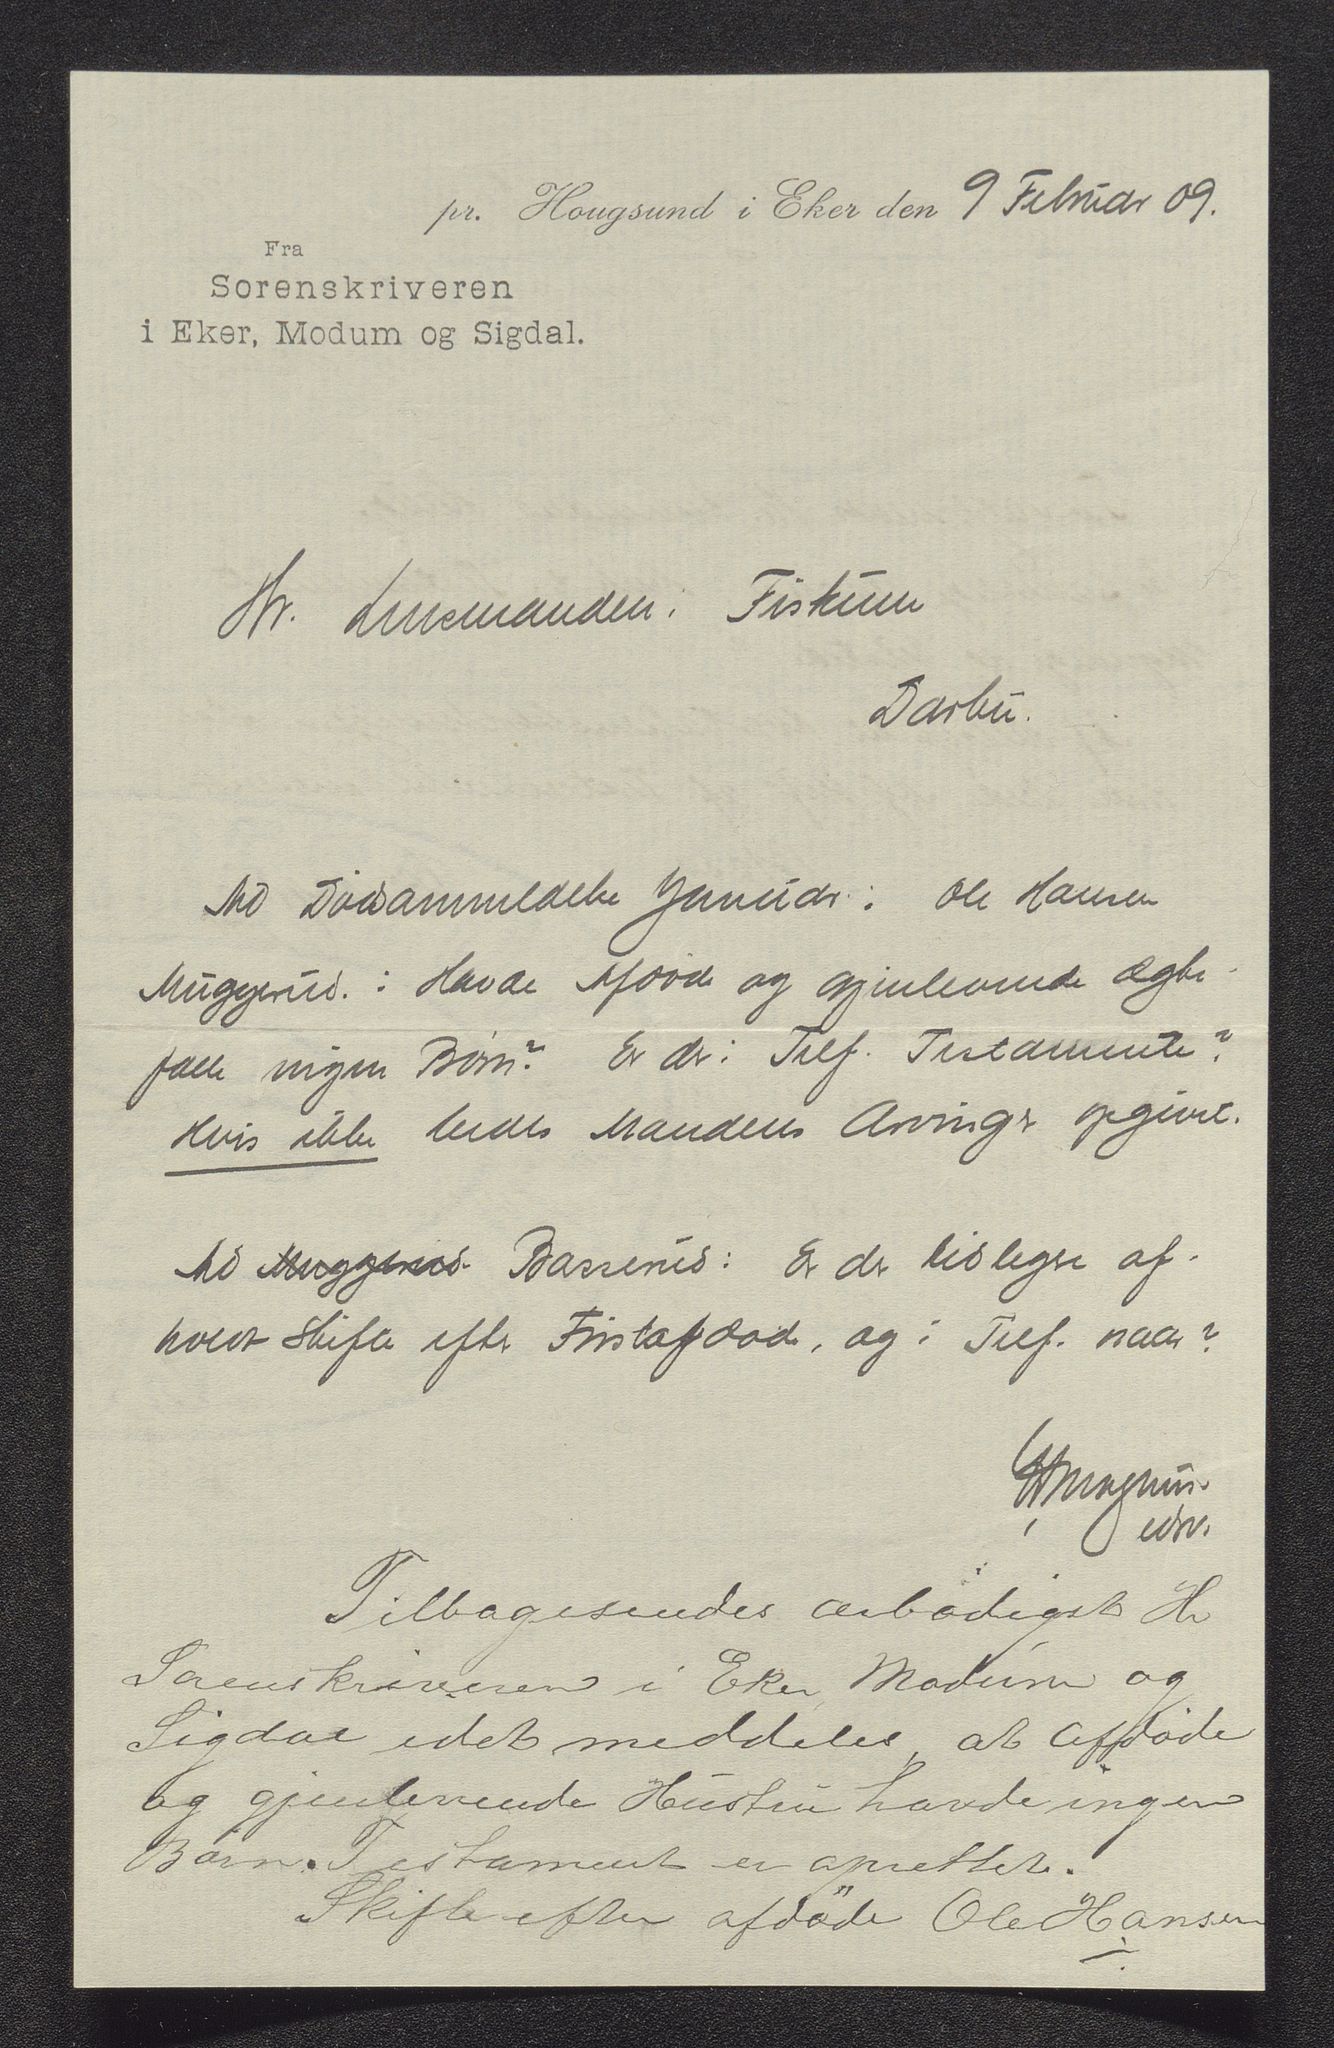 pr. Hougsund i Eker den 9 Februar 09.
Fra
Sorenskriveren
i Eker, Modum og Sigdal.
Hr. Lensmanden i Fiskum
Darbu.
Ad Dødsanmeldelse Januar: Ole Hansen
Muggerud.: Havde Afdøde og gjenlevende Ægte-
fælle ingen Børn? Er der i Tilf. Testamente?
Hvis ikke bedes Mandens Arvinger opgivet.
Ad Muggerud. Basserud: Er der tidligere af-
holdt Skifte efter Førstafdøde, og i Tilf. naar?
Magnus.
edsv.
Tilbagesendes ærbødigst Hr
Sorenskriveren i Eker, Modum og
Sigdal idet meddeles, at afdøde
og gjenlevende Hustru havde ingen
Børn. Testament er oprettet.
Skifte efter afdøde Ole Hansen